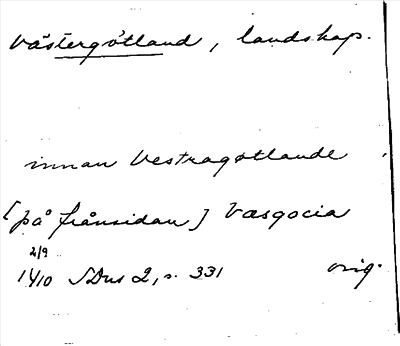 Västergötland, landskap.
innan Vestragøtlande
[på frånsidan] Vasgocia
2/9
1410 SDns 2, s. 331 orig.